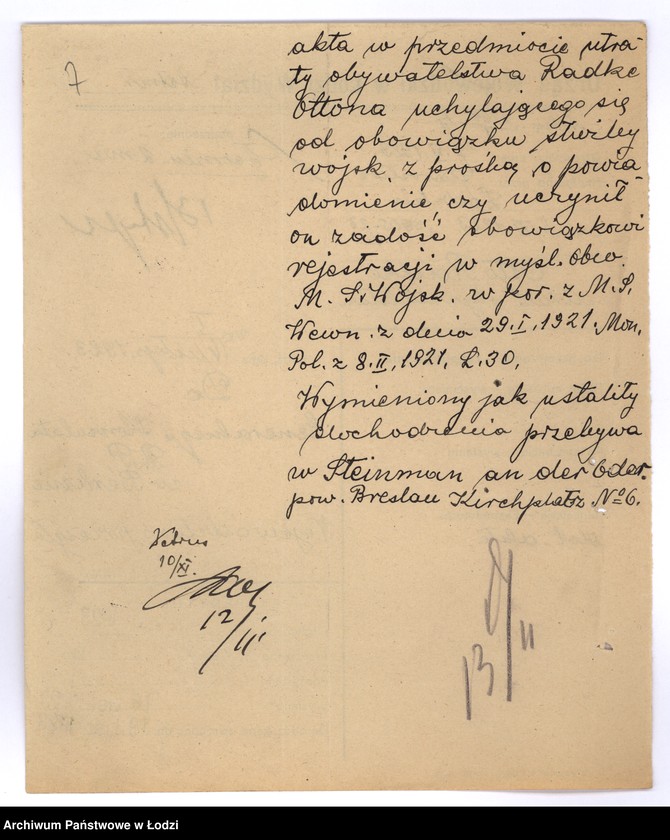 7
akta w przedmiocie utra-
ty obywatelstwa Radke
Ottona uchylającego się
od obowiązku służby
wojsk. z prośbą o powia-
domienie, czy uczynił
on zadość obowiązkowi
rejestracji w myśl. obw.
M. S. Wojsk. w por. z M. S.
Wewn. z dnia 29.I.1921. Mon.
Pol. z 8.II.1921. L.30.
Wymieniony jak ustaliły
dochodzenia przebywa
w Steinman an der Oder.
pow. Breslau Kirchplatz No 6.
10/XI.
12/11
13/11
Archiwum Państwowe w Łodzi